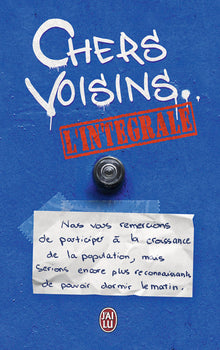 CHERS
VOISINS...
L'INTÉGRALE
Nous vous remercions
de participer à la croissance
de la population, mais
serions encore plus reconnaissants
de pouvoir dormir le matin.
J'AI
LU